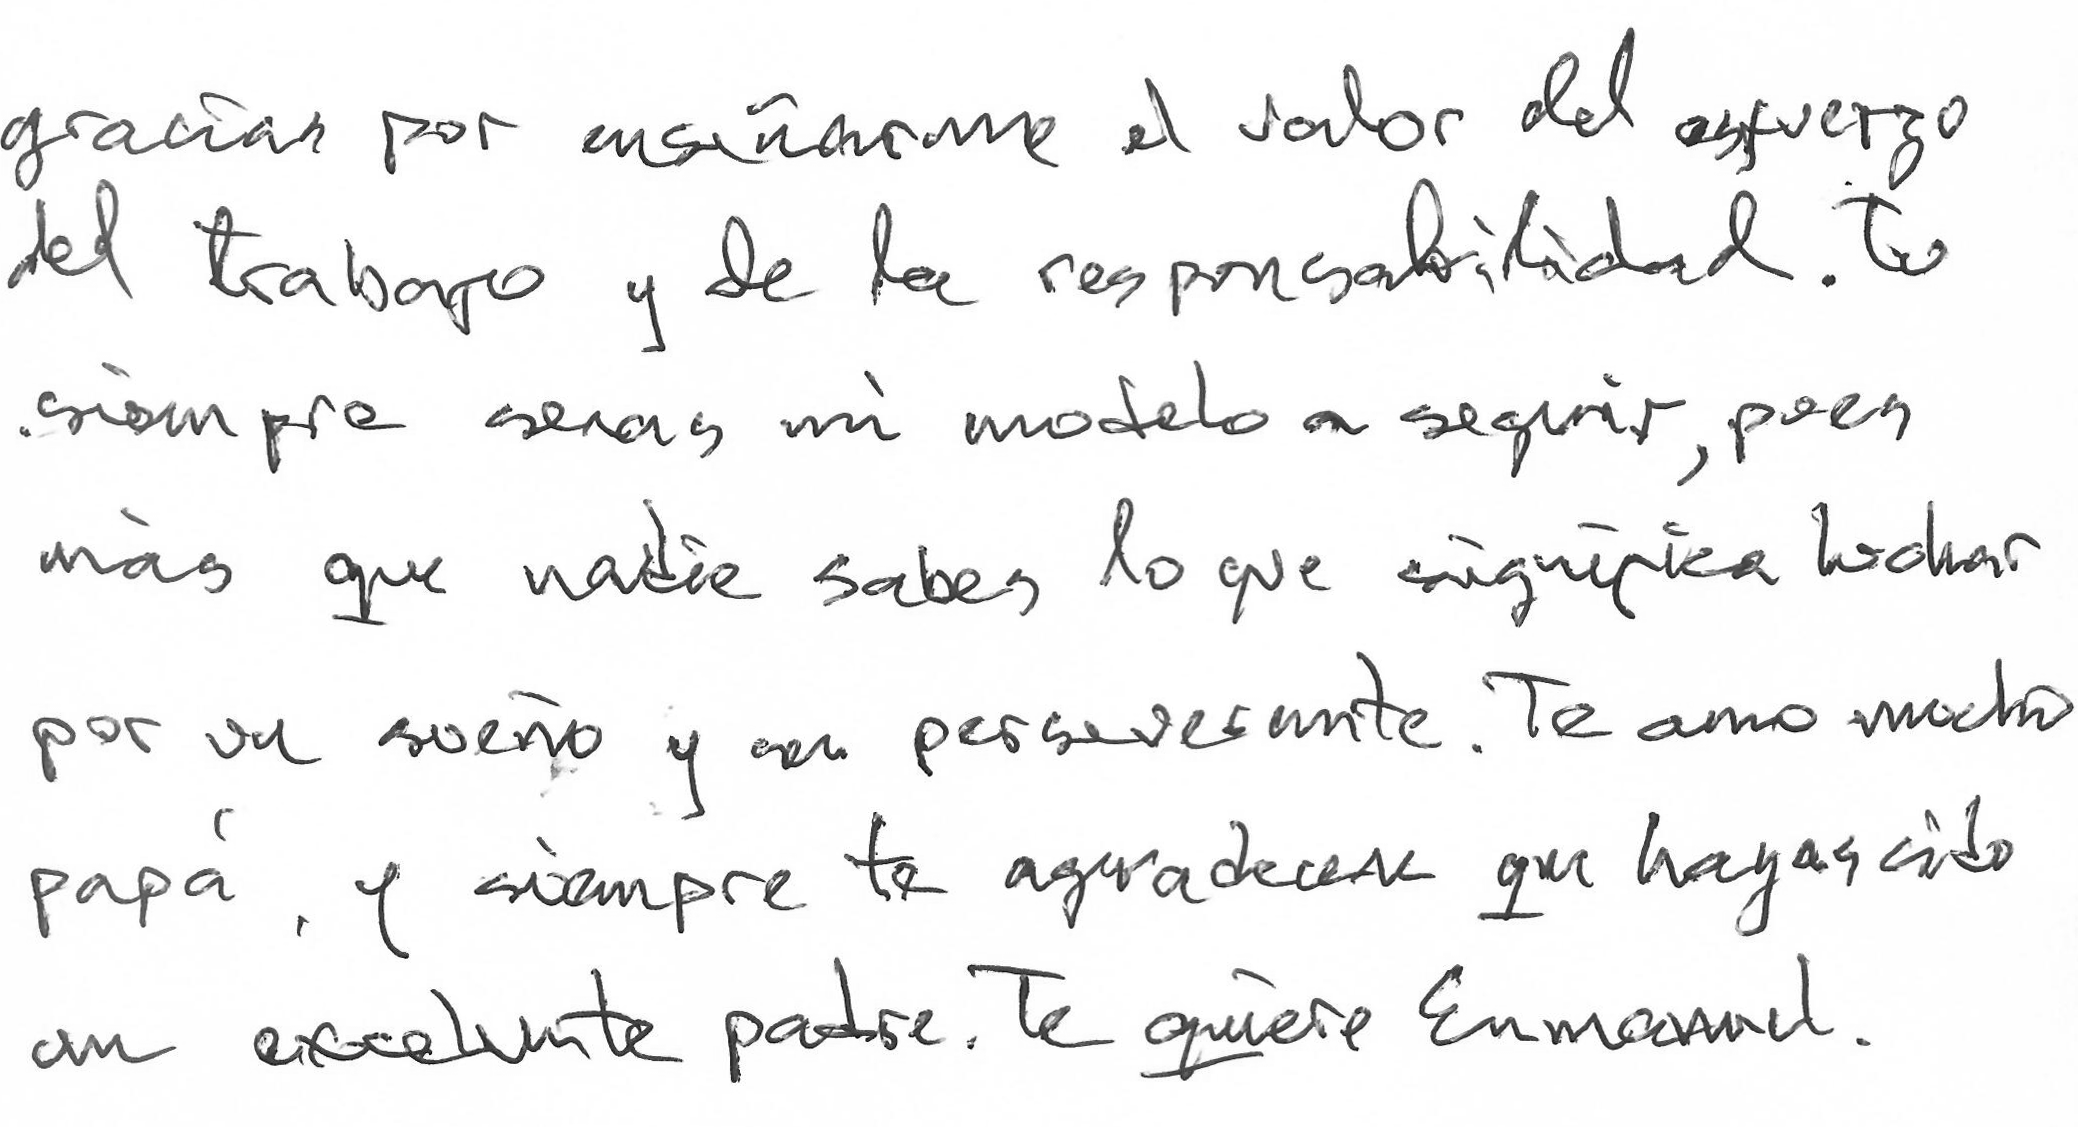 gracias por enseñarme el valor del esfuerzo
del trabajo y de la responsabilidad. Tu
siempre seras mi modelo a seguir, pues
màs que nadie sabes lo que significa luchar
por un sueño y ser perseverante. Te amo mucho
papá, y siempre te agradeceré que hayas sido
un excelente padre. Te quiere Enmanuel.